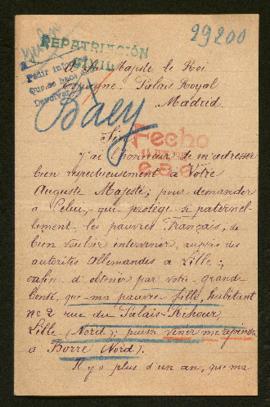 29200
REPATRIACIÓN
A Sa Majesté le Roi
Espagne. Palais Royal
Madrid
Baey
Sire
Hecho
J'ai l'honneur de m'adresser
bien respectueusement à Votre
Auguste Majesté; pour demander
à Celui, qui protège si paternel-
lement, les pauvres Français, de
bien vouloir intervenir, auprès des
autorités Allemandes à Lille;
afin d'obtenir par votre grande
bonté, que ma pauvre fille, habitant
nº 2 rue du Palais-Rihour,
Lille (Nord); puisse venir me rejoindre
à Borre (Nord).
Il y a plus d'un an, que ma